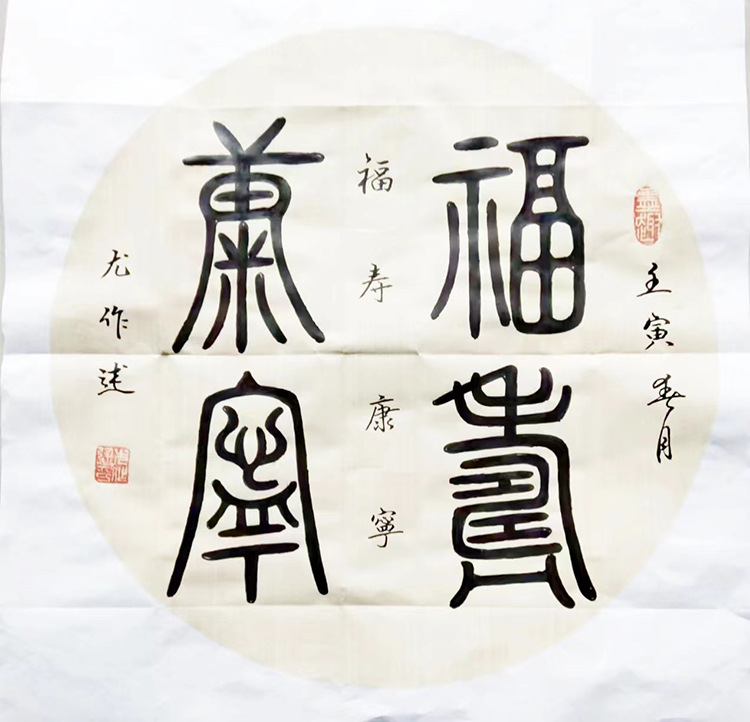 壬寅春月
福壽
福寿康寧
康寧
尤作述